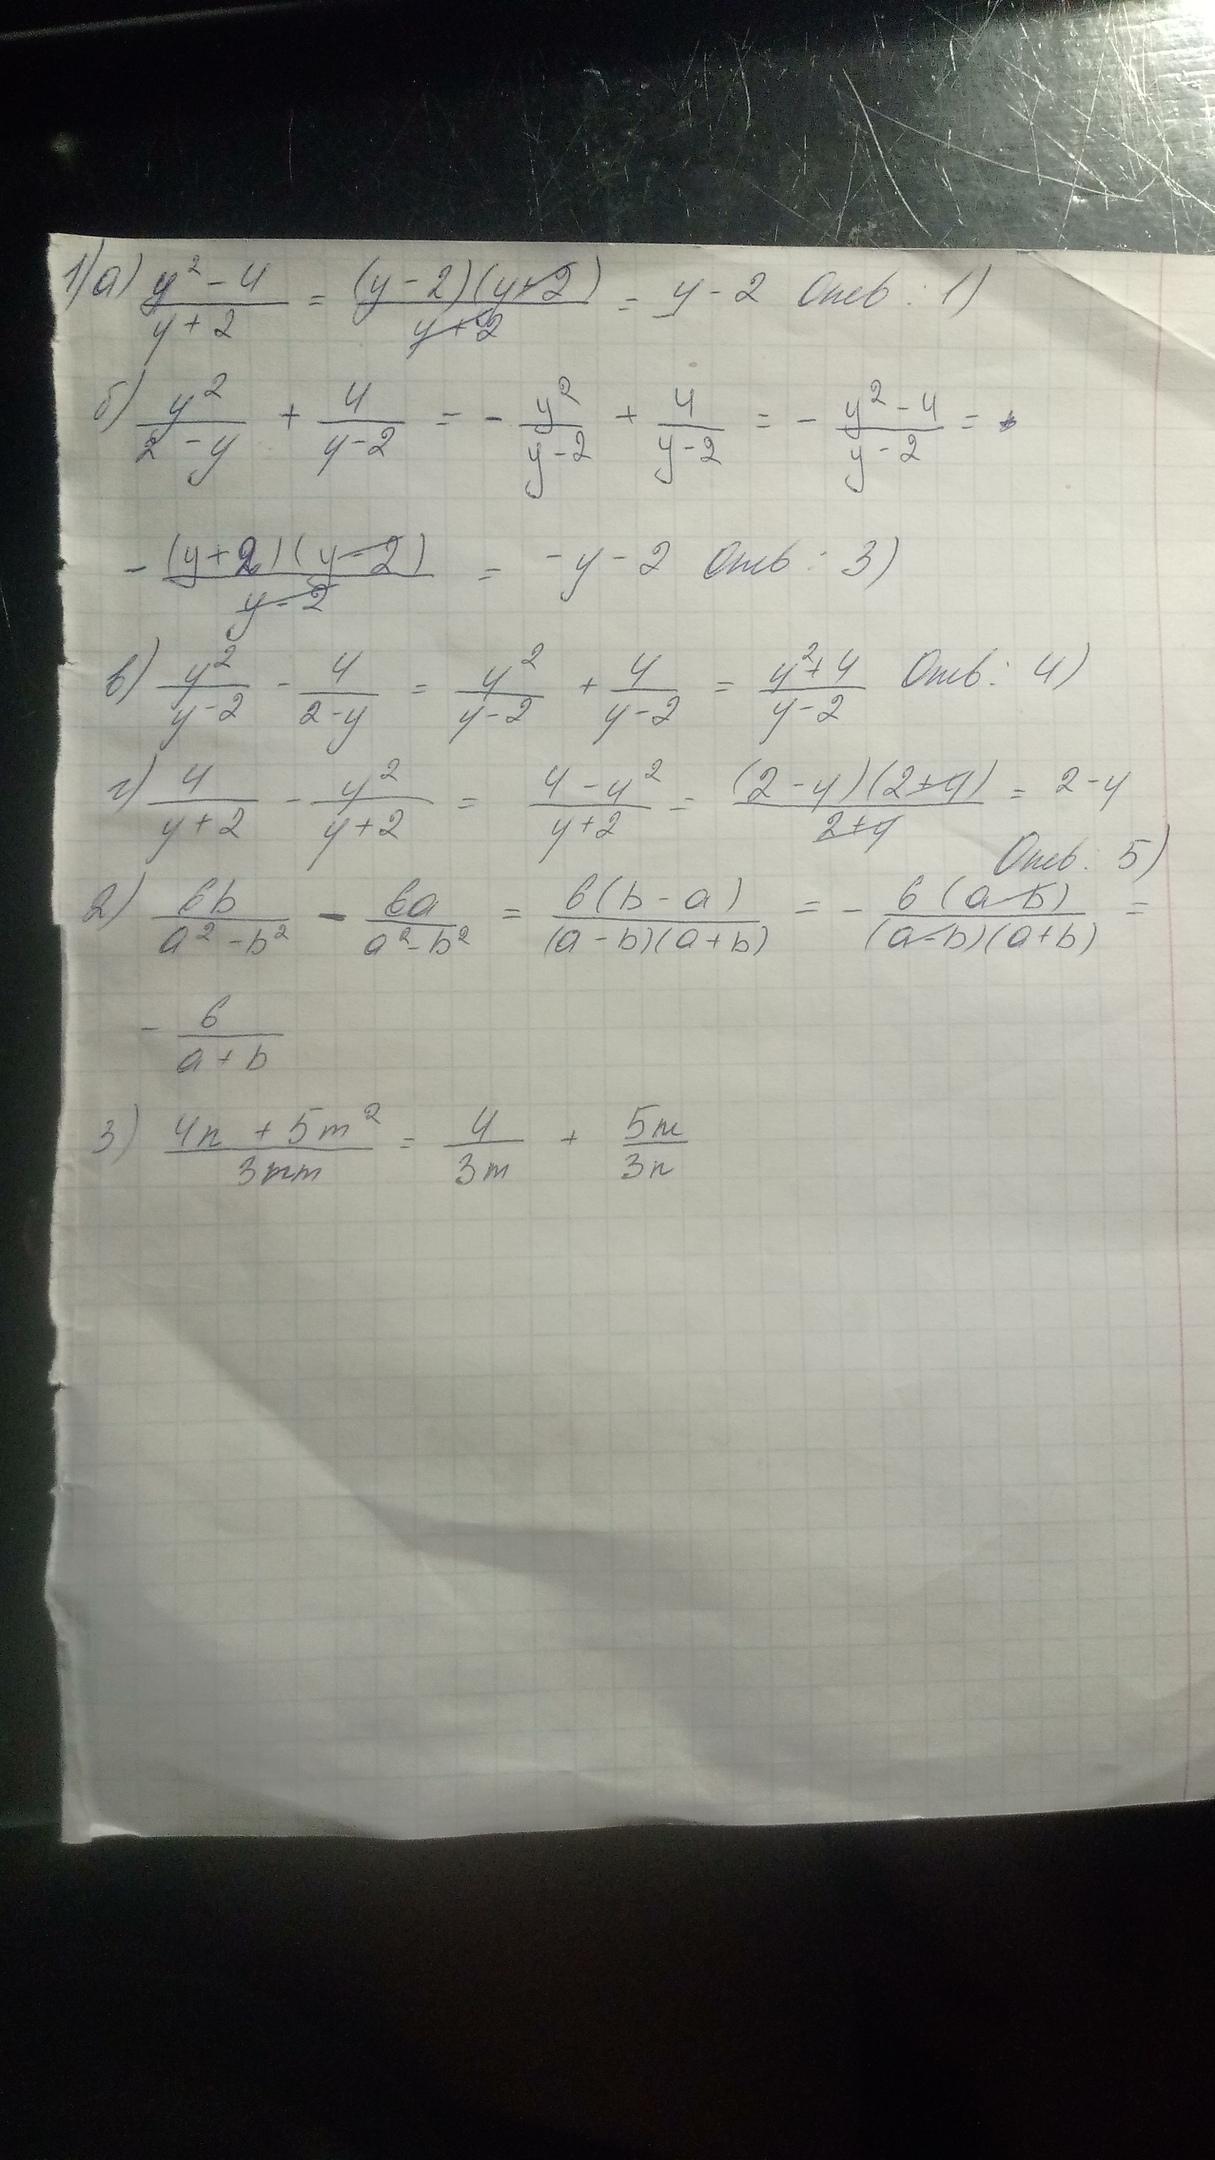 1) а) (y² - 4)/(y + 2) = ((y - 2)(y + 2))/(y + 2) = y - 2 Отв: 1)
б) y²/(2 - y) + 4/(y - 2) = - y²/(y - 2) + 4/(y - 2) = - (y² - 4)/(y - 2) =
- ((y + 2)(y - 2))/(y - 2) = -y - 2 Отв: 3)
в) y²/(y - 2) - 4/(2 - y) = y²/(y - 2) + 4/(y - 2) = (y² + 4)/(y - 2) Отв: 4)
г) 4/(y + 2) - y²/(y + 2) = (4 - y²)/(y + 2) = ((2 - y)(2 + y))/(2 + y) = 2 - y
Отв: 5)
2) 6b/(a² - b²) - 6a/(a² - b²) = 6(b - a)/((a - b)(a + b)) = - 6(a - b)/((a - b)(a + b)) =
- 6/(a + b)
3) (4n + 5m²)/(3nm) = 4/(3m) + 5m/(3n)